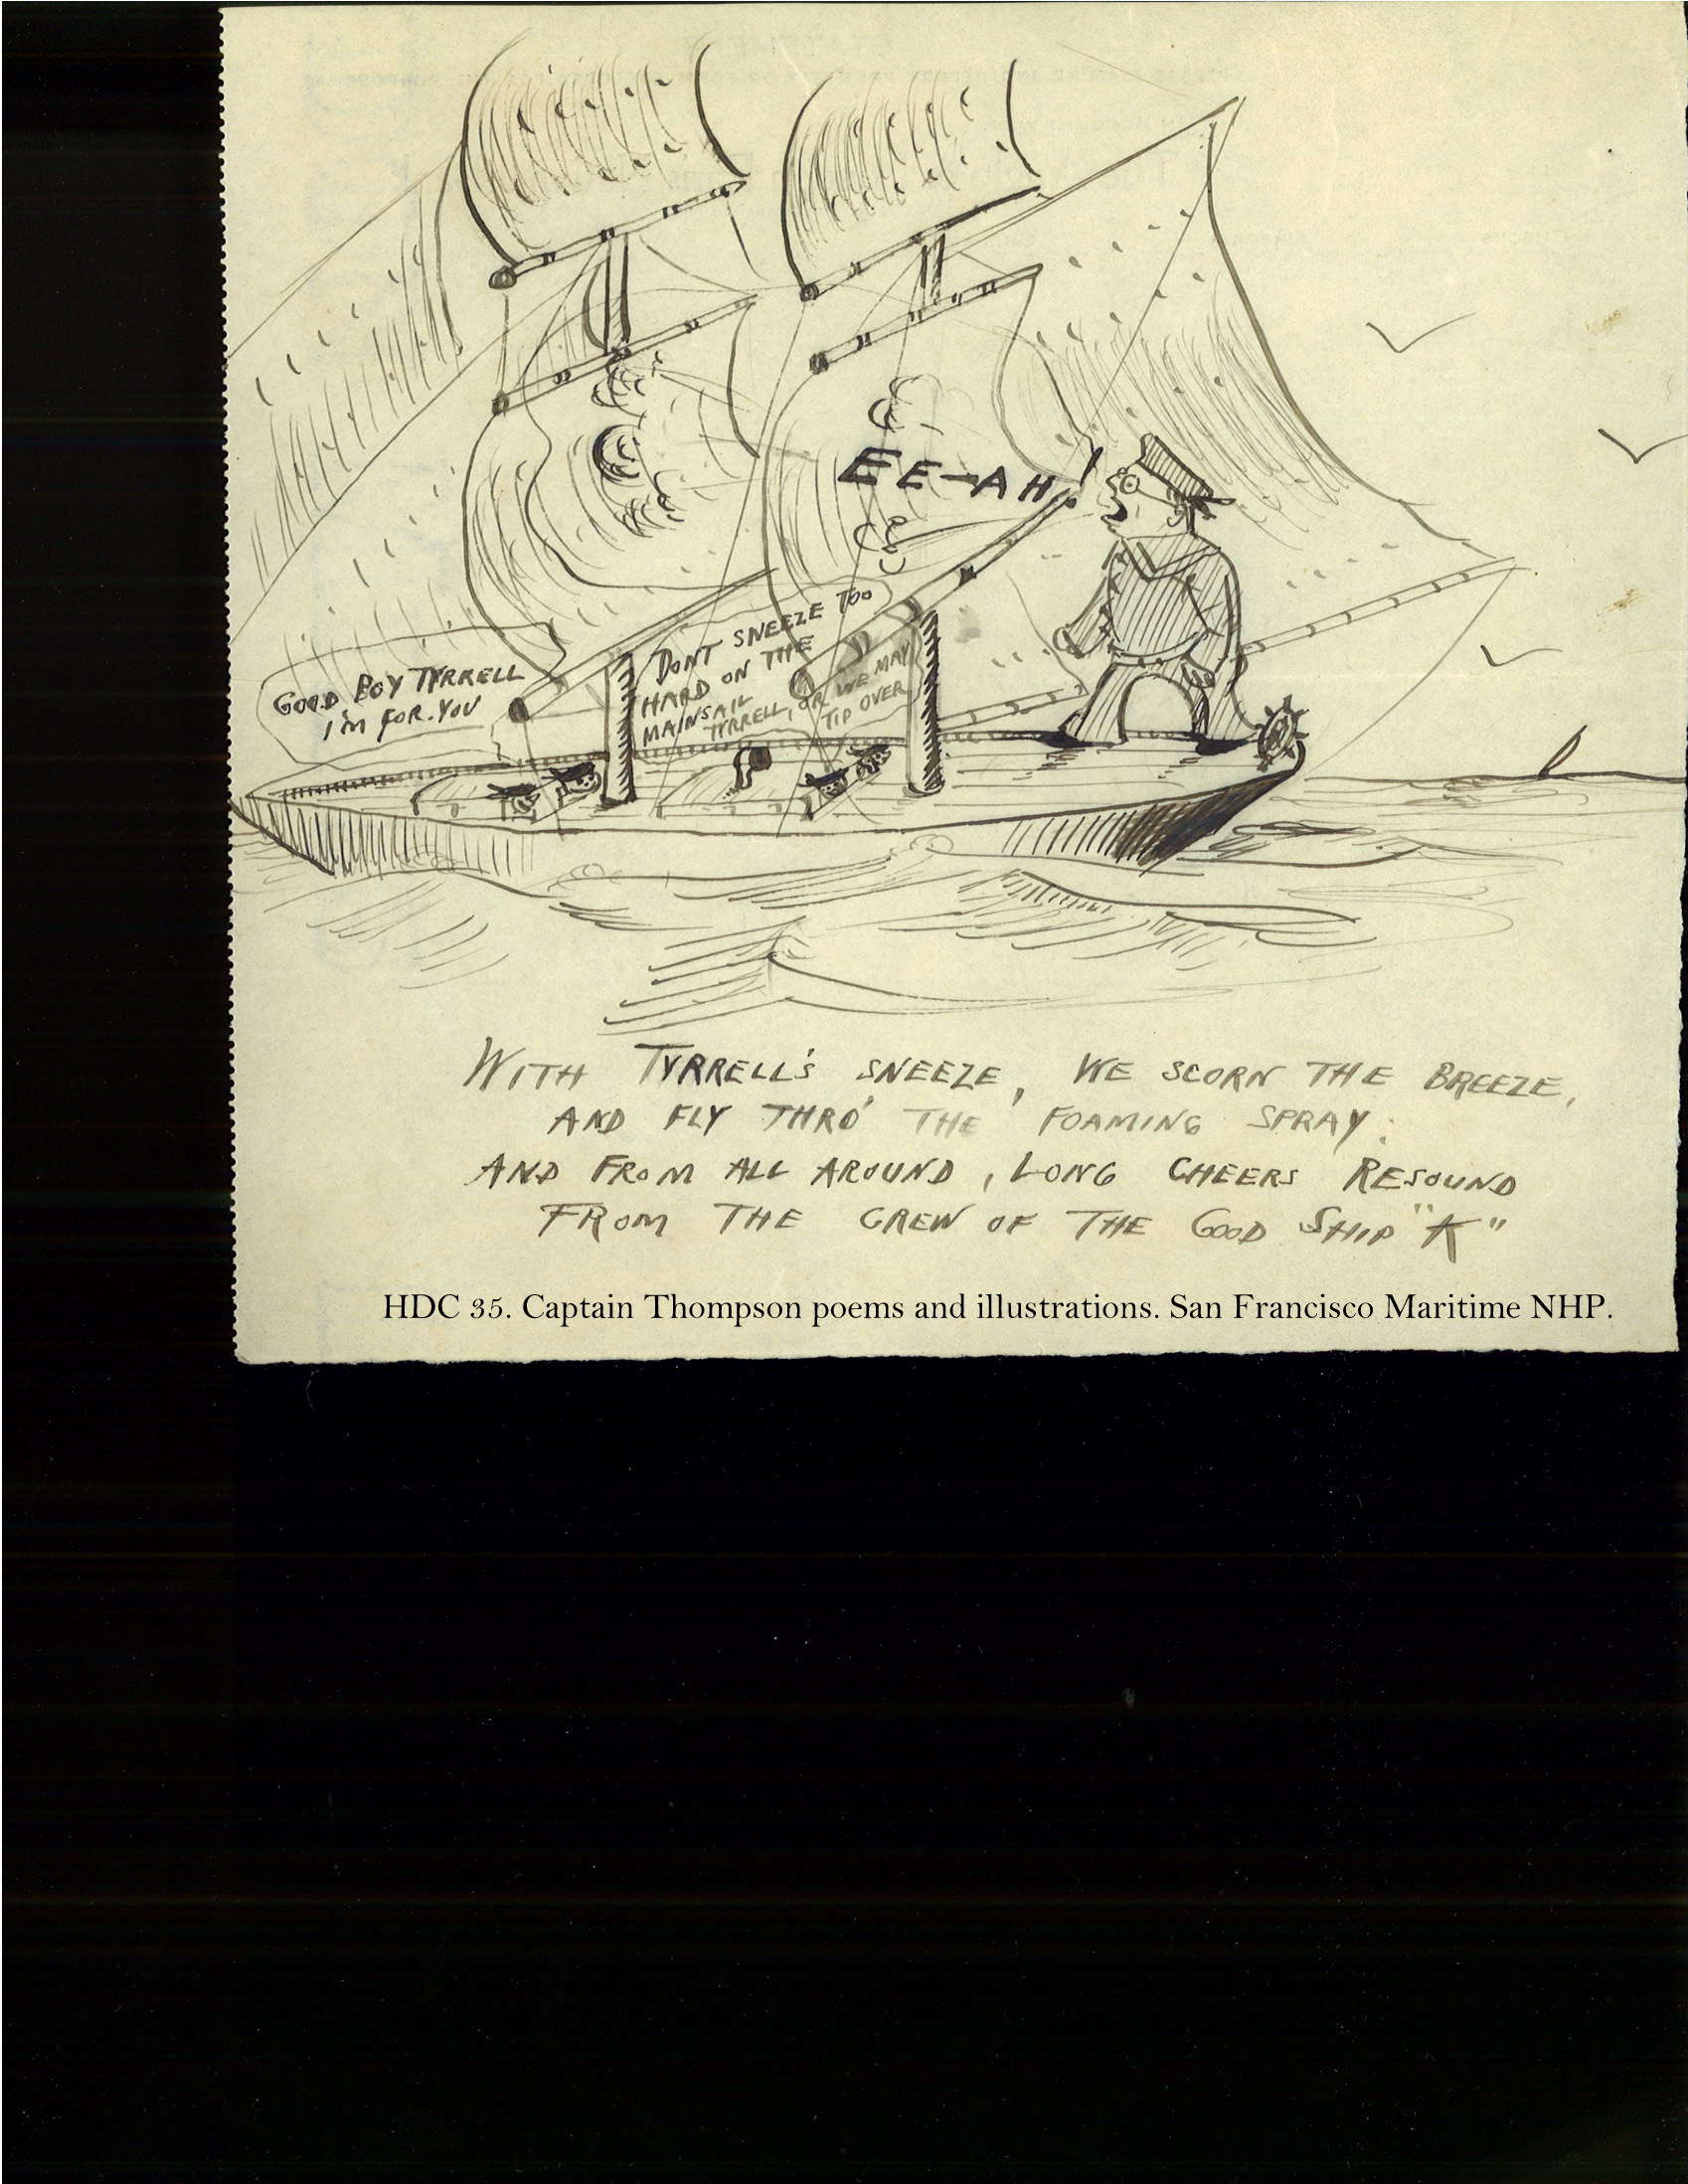 EE-AH!
GOOD BOY TYRRELL
I'M FOR. YOU
DONT SNEEZE TOO
HARD ON THE
MAINSAIL
TYRRELL, OR WE MAY
TIP OVER
WITH TYRRELL'S SNEEZE, WE SCORN THE BREEZE,
AND FLY THRO' THE FOAMING SPRAY.
AND FROM ALL AROUND, LONG CHEERS RESOUND
FROM THE CREW OF THE GOOD SHIP "K"
HDC 35. Captain Thompson poems and illustrations. San Francisco Maritime NHP.